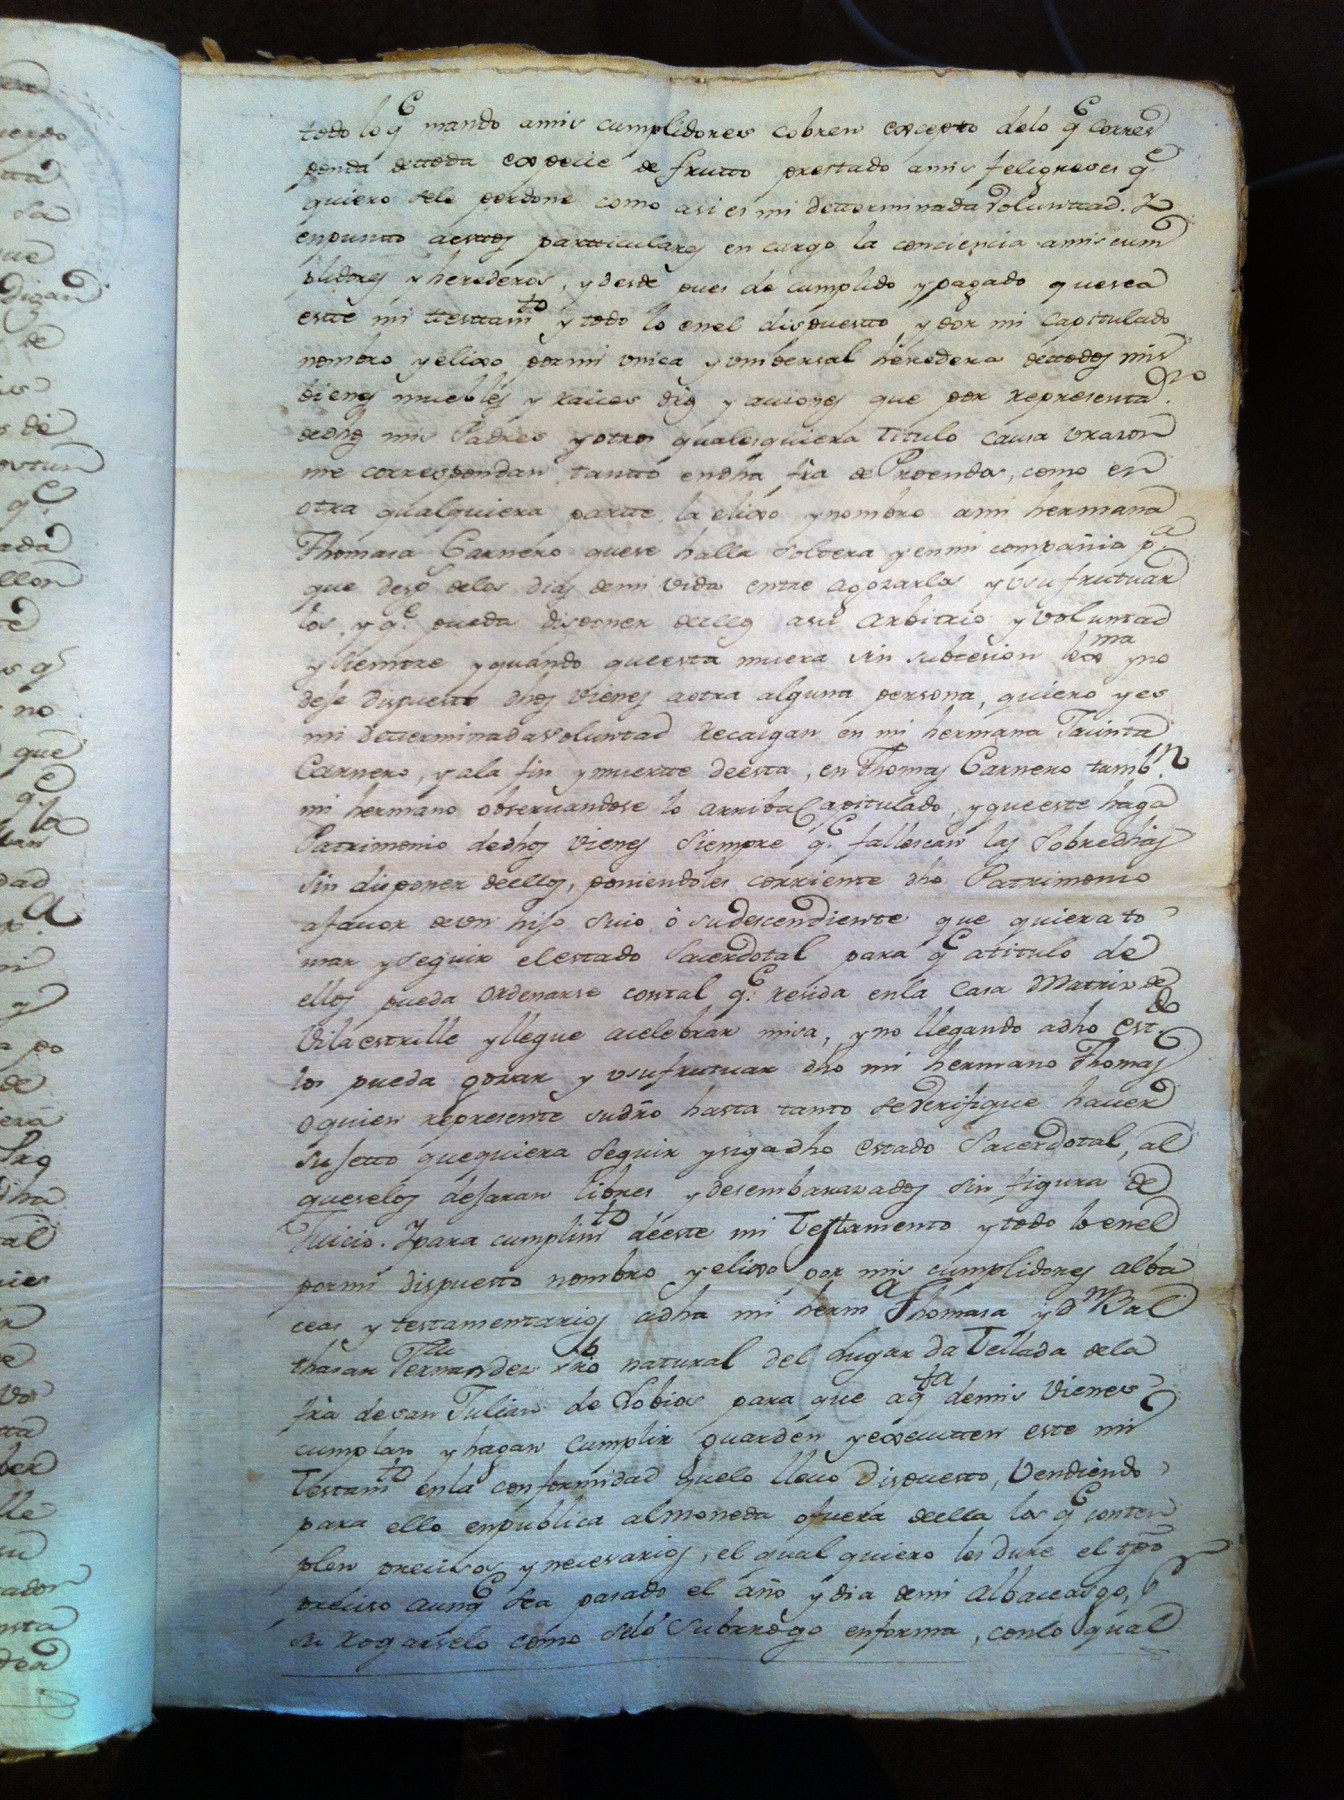 todo lo q.e mando amis cumplidores cobren excepto delo q.e corres
ponda detoda expecie de frutto prestado amis feligreses q.e
quiero sele perdone como asi es mi determinada Voluntad. Y
enpunto aestos particulares en cargo la conciencia amis cum
plidores y herederos, y desde pues de cumplido y pagado quesea
este mi ttesttam.to y todo lo enel dispuestto y por mi Capitulado
nombro y elixo por mi unica y vnibersal heredera dettodos mis
bienes muebles y raices dros y aciones que por representa.on
demis Padres y otros qualesquiera titulo causa vrason
me correspondan tantto endha fra de Proendos, como en
otra qualquiera partte la elixo y nombro ami hermana
Thomasa Carnero quese halla Soltera y enmi compañia p.a
que desp.s delos dias demi vida entre agozarlos y vsufrutuar
los, y q.e pueda disponer deellos asu Arbitrio y voluntad
y Siempre y quando queesta muera sin subcesion lexma y no
deje dispuesto dhos vienes aotra alguna persona, quiero y es
mi Determinada voluntad Recaigan en mi hermana Jacinta
Carnero, y ala fin y muertte deesta, en Thomas Carnero tamb.n
mi hermano observandose lo arriba Capitulado, y queeste haga
Patrimonio dedhos vienes Siempre q.e fallescan las Sobredhas
Sin disponer deellos, poniendoles corriente dho Patrimonio
afavor deun hijo Suio ò sudescendiente que quiera to
mar y seguir elestado Sacerdotal para q.e atitulo de
ellos pueda Ordenarse contal q.e resida enla Casa Matris de
Vilaestrille y llegue acelebrar misa, y no llegando adho est.do
los pueda gozar y vsufrutuar dho mi hermano Thomas
oquien represente sudro hasta tanto se Verifique haver
sujetto quequiera Seguir y siga dho Estado Sacerdotal, al
queselos dejaran libres y desembarazados sin figura de
Juicio. Ypara cumplim.to deeste mi Testamento y todo lo enel
pormi dispuesto nombro y elixo por mis cumplidores alba
ceas y testamentarios adha mi herm.a Thomasa y d.n Bal
thasar Fernandez natural del Lugar da Tellada dela
fra desan Julian de Lobios para que aq.ta demis Vienes
cumplan y hagan Cumplir guarden y executten este mi
Testam.to enla conformidad quelo llevo Dispuesto, Vendiendo
para ello enpublica almoneda ofuera deella los q.e contem
plen precisos y necesarios, el qual quiero les dure el tpo
preciso aunq.e Sea pasado el año y dia demi Albaceasgo,
Su rogarselo como selo Subrrogo enforma, conlo qual